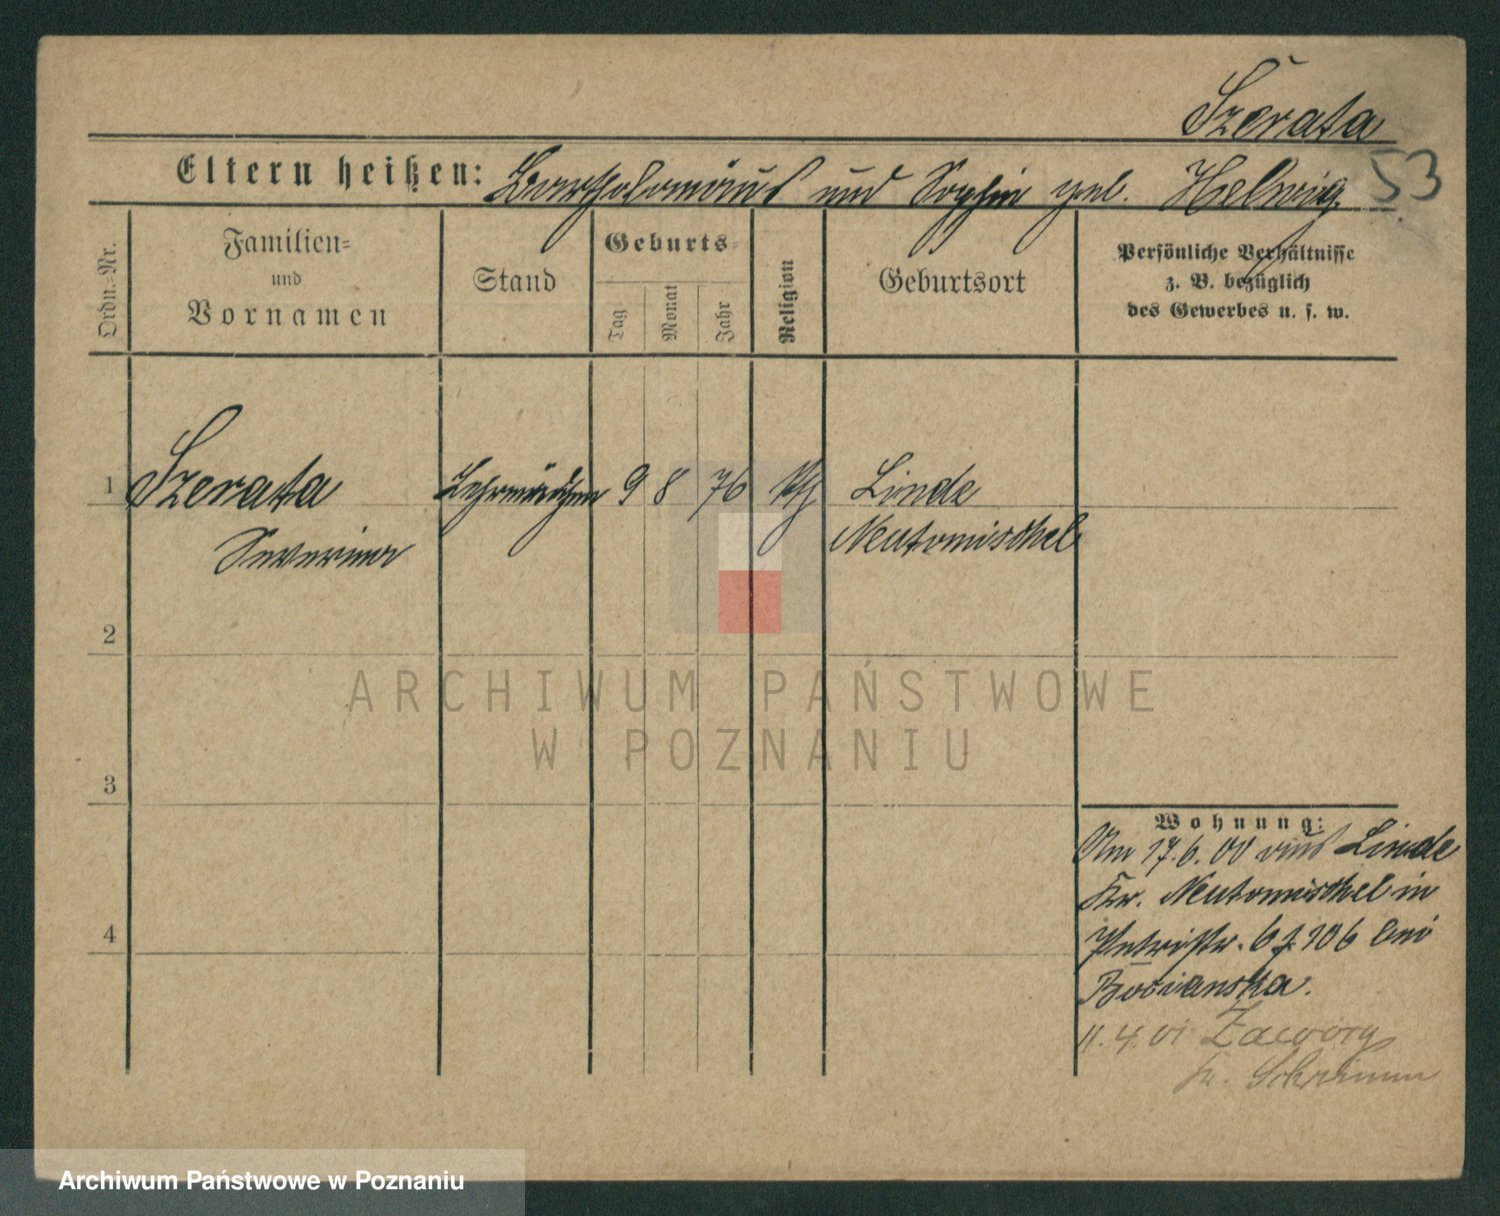 Szerata
Eltern heißen: Bartholomäus und Sophie geb. Helwig.
53
Ordn.-Nr.
Familien-
und
Vornamen
Stand
Geburts-
Tag
Monat
Jahr
Religion
Geburtsort
Persönliche Verhältnisse
z. B. bezüglich
des Gewerbes u. s. w.
1 Szerata Lehrmädchen 9 8 76 kth Linde
Severina Neutomischel
2
ARCHIWUM PAŃSTWOWE
W POZNANIU
3
Wohnung:
Am 17.6.00 aus Linde
Kr. Neutomischel in
4
Petristr. 6 f. 106 bei
Bocianska.
11.4.01 Zaworg
Kr. Schrimm
Archiwum Państwowe w Poznaniu